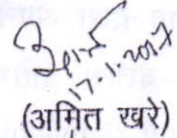 17.1.2017
(अमित खरे)